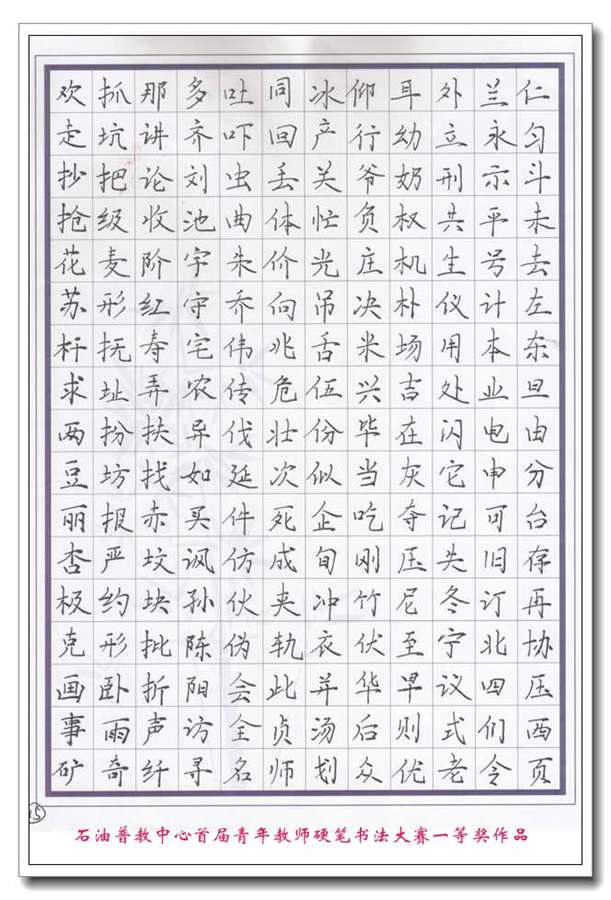 仁匀斗未去左东旦由分台存再协压西页
兰永示平号计本业电申可旧订北四们令
外立刑共生仪用处闪它记失冬宁议式老
耳幼奶权机朴场吉在灰夺压尼至早则优
仰行爷负庄决米兴毕当吃刚竹伏华后众
冰产关忙光吊舌伍份似企旬冲衣并汤划
同回丢体价向兆危壮次死成夹轨此贞师
吐吓虫曲朱乔伟传伐延件仿伙伪会全名
多齐刘池宇守宅农异如买讽孙陈阳访寻
那讲论收阶红寿弄扶找赤坟块批折声纤
抓坑把级麦形抚址扮坊报严约形卧雨奇
欢走抄抢花苏杆求两豆丽杏极克画事矿
15
石油普教中心首届青年教师硬笔书法大赛一等奖作品